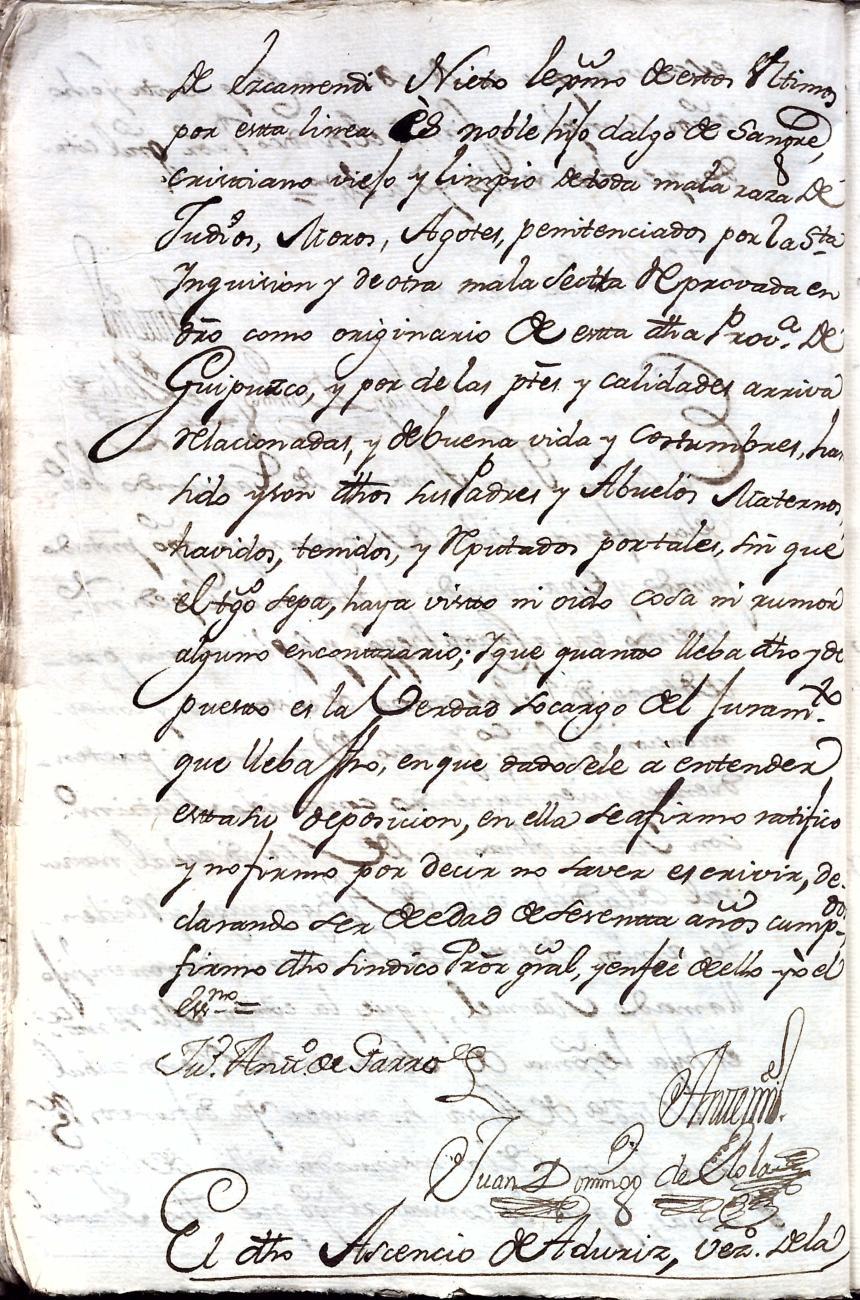 de Ezcamendi Nieto lexmo de estos Ultimos
por estta linea ès noble hijo dalgo de sangre,
cristiano viejo y limpio detoda mala raza de
Judios, Moros, Agotes, penitenciados por la Sta
Inquisicion y de otra mala Sectta Reprovada en
dro como originario de estta dha Prova. de
Guipuzco, y por de las ptes y calidades arriva
relacionadas, y debuena vida y costumbres, ha
sido y son dhos sus Padres y Abuelos Maternos
havidos, tenidos, y Reputados portales, sin que
el tgo sepa, haya vistto ni oido cosa ni rumor
alguno encontrario; Y que quanto lleba dho y de
puesto es la Verdad socargo del Juramto.
que lleba fho, en que dadosele à entender
estta su deposicion, en ella se afirmo ratifico
y no firmo por decir no saver escrivir, de-
clarando ser de edad de sesentta años cumpdos
firmo dho sindico Pror gral, y enfeè de ello yò el
essno=
Ju. Anto. de Garro
Antemi
Juan Domingo de Elola
El dho Ascencio de Aduriz, vezo. dela